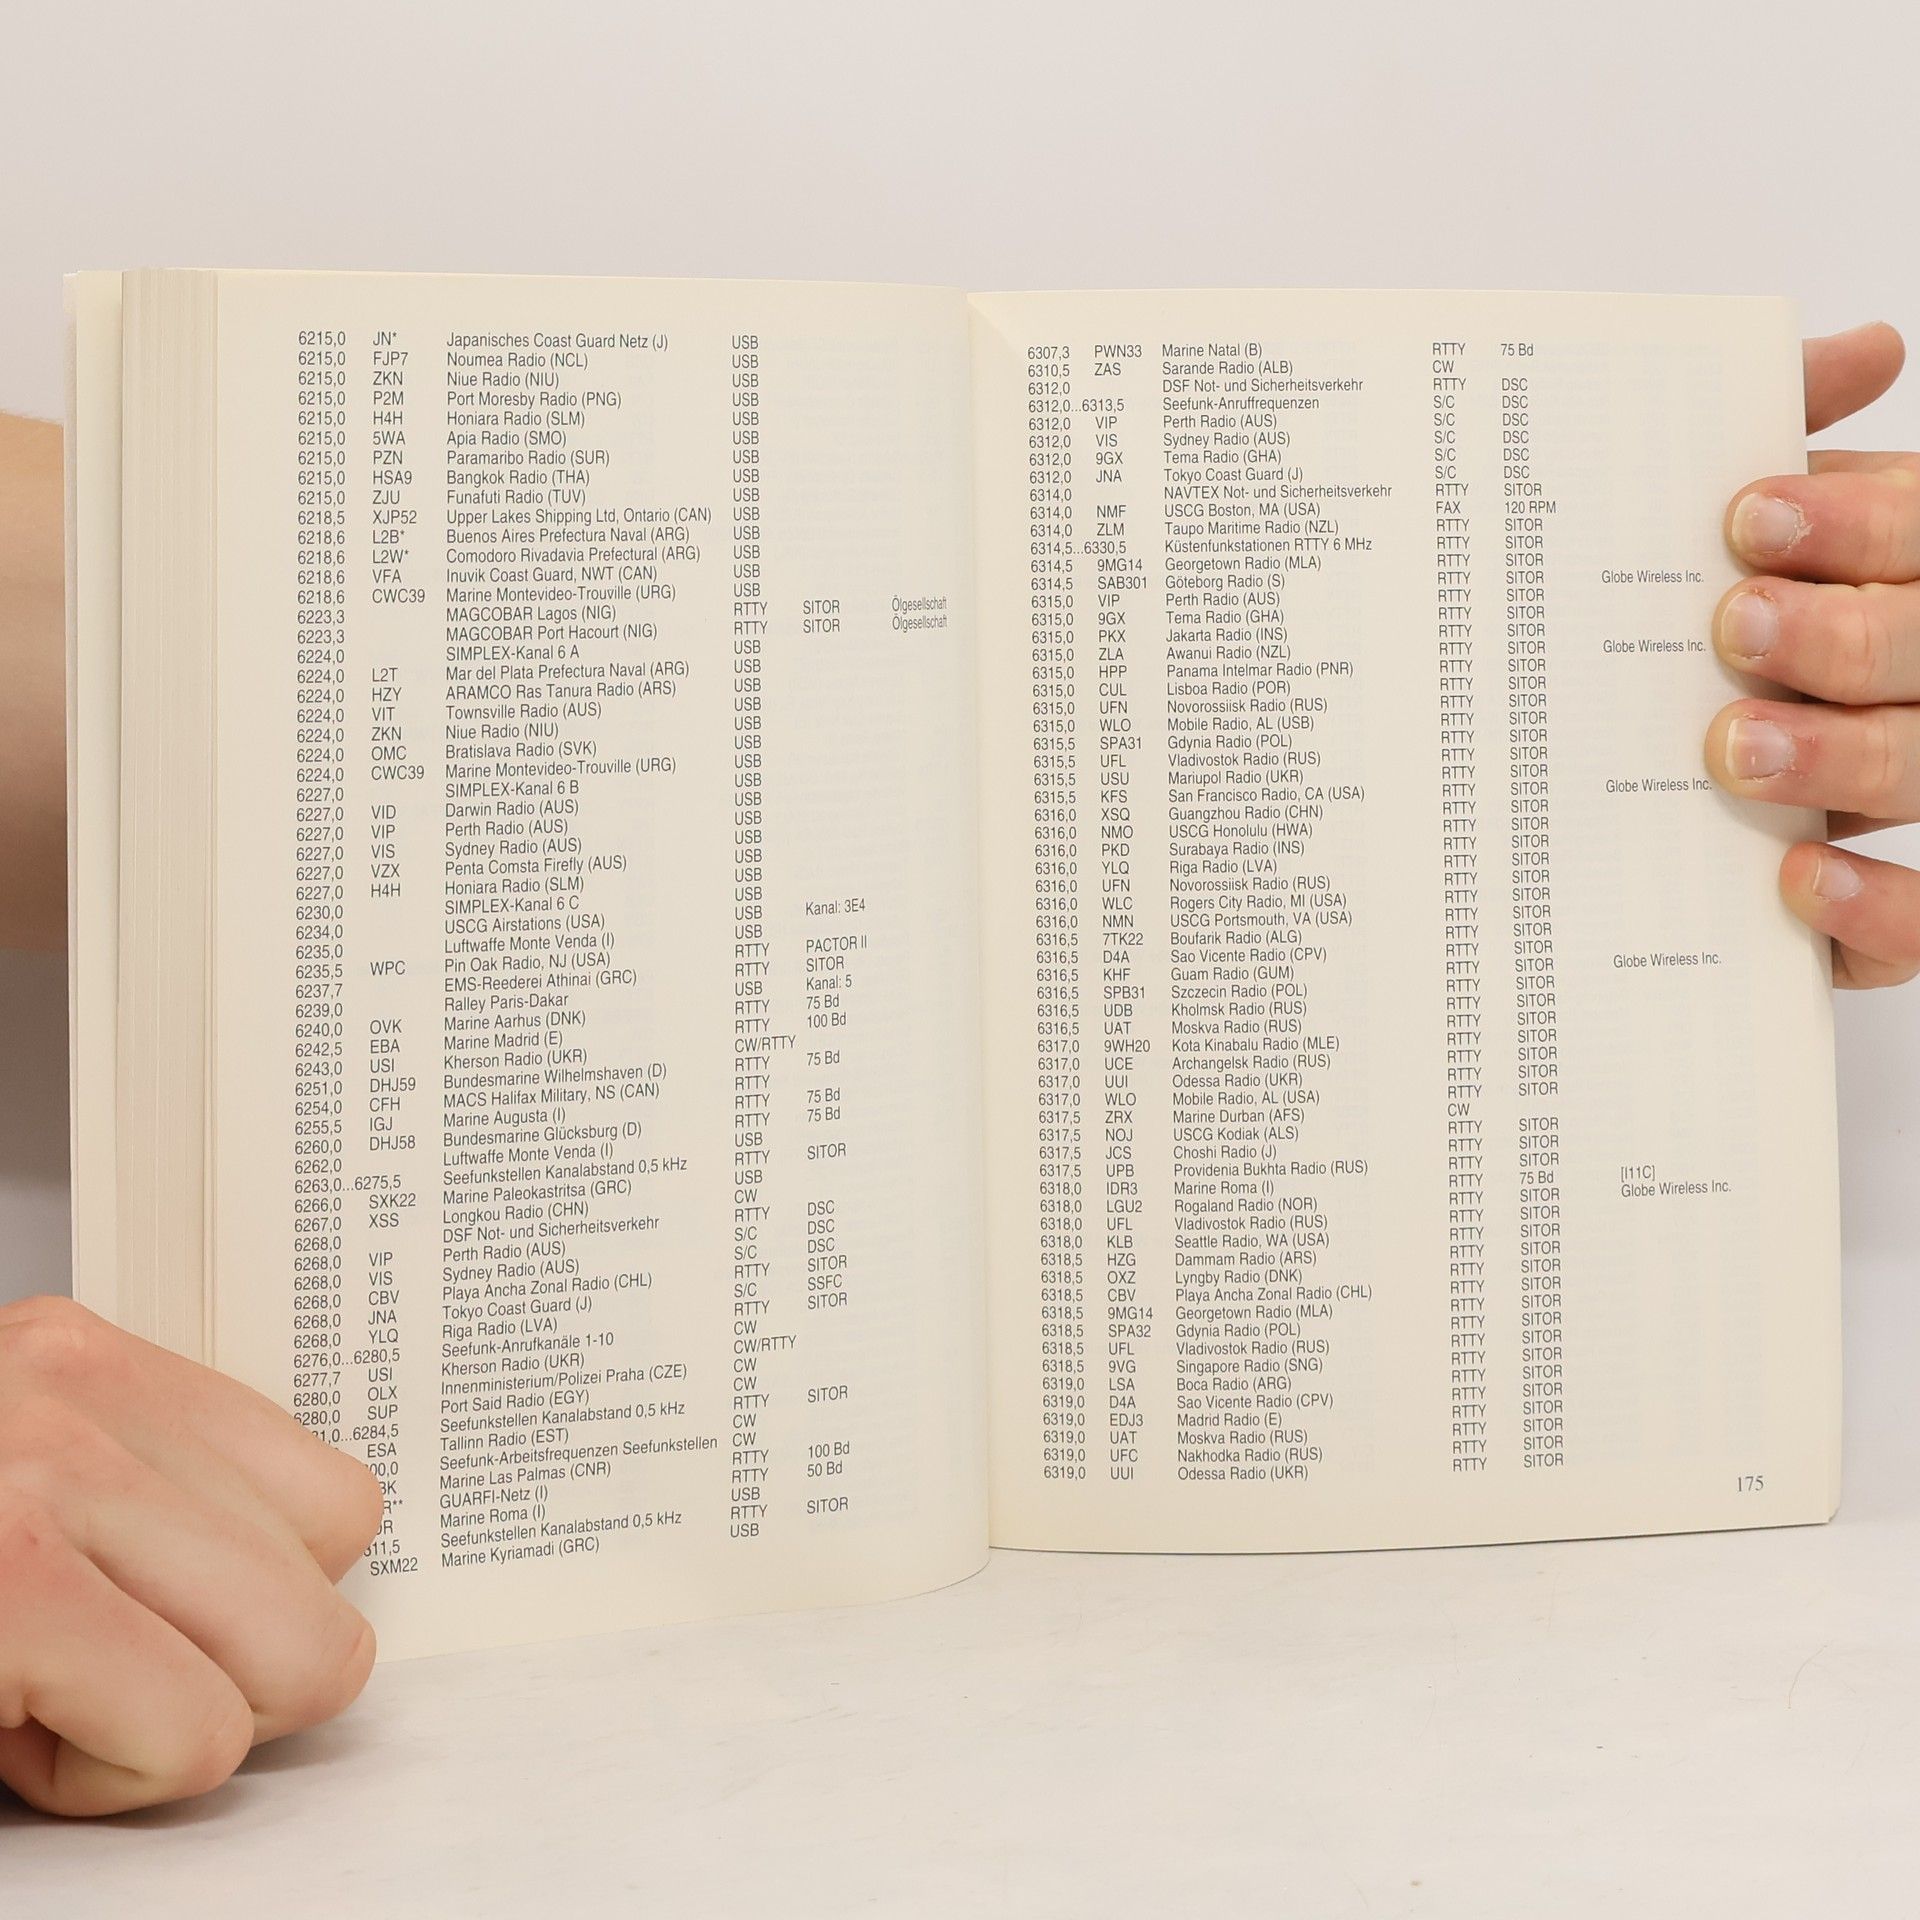 6215,0 JN* Japanisches Coast Guard Netz (J) USB
6215,0 FJP7 Noumea Radio (NCL) USB
6215,0 ZKN Niue Radio (NIU) USB
6215,0 P2M Port Moresby Radio (PNG) USB
6215,0 H4H Honiara Radio (SLM) USB
6215,0 5WA Apia Radio (SMO) USB
6215,0 PZN Paramaribo Radio (SUR) USB
6215,0 HSA9 Bangkok Radio (THA) USB
6215,0 ZJU Funafuti Radio (TUV) USB
6218,5 XJP52 Upper Lakes Shipping Ltd, Ontario (CAN) USB
6218,6 L2B* Buenos Aires Prefectura Naval (ARG) USB
6218,6 L2W* Comodoro Rivadavia Prefectural (ARG) USB
6218,6 VFA Inuvik Coast Guard, NWT (CAN) USB
6218,6 CWC39 Marine Montevideo-Trouville (URG) USB
6223,3 MAGCOBAR Lagos (NIG) RTTY SITOR Ölgesellschaft
6223,3 MAGCOBAR Port Hacourt (NIG) RTTY SITOR Ölgesellschaft
6224,0 SIMPLEX-Kanal 6 A USB
6224,0 L2T Mar del Plata Prefectura Naval (ARG) USB
6224,0 HZY ARAMCO Ras Tanura Radio (ARS) USB
6224,0 VIT Townsville Radio (AUS) USB
6224,0 ZKN Niue Radio (NIU) USB
6224,0 OMC Bratislava Radio (SVK) USB
6224,0 CWC39 Marine Montevideo-Trouville (URG) USB
6227,0 SIMPLEX-Kanal 6 B USB
6227,0 VID Darwin Radio (AUS) USB
6227,0 VIP Perth Radio (AUS) USB
6227,0 VIS Sydney Radio (AUS) USB
6227,0 VZX Penta Comsta Firefly (AUS) USB
6227,0 H4H Honiara Radio (SLM) USB
6230,0 SIMPLEX-Kanal 6 C USB
6234,0 USCG Airstations (USA) USB Kanal: 3E4
6235,0 Luftwaffe Monte Venda (I) USB
6235,5 WPC Pin Oak Radio, NJ (USA) RTTY PACTOR II
6237,7 EMS-Reederei Athinai (GRC) RTTY SITOR
6239,0 Ralley Paris-Dakar USB Kanal: 5
6240,0 OVK Marine Aarhus (DNK) RTTY 75 Bd
6242,5 EBA Marine Madrid (E) RTTY 100 Bd
6243,0 USI Kherson Radio (UKR) CW/RTTY
6251,0 DHJ59 Bundesmarine Wilhelmshaven (D) RTTY 75 Bd
6254,0 CFH MACS Halifax Military, NS (CAN) RTTY
6255,5 IGJ Marine Augusta (I) RTTY 75 Bd
6260,0 DHJ58 Bundesmarine Glücksburg (D) RTTY 75 Bd
6262,0 Luftwaffe Monte Venda (I) USB
6263,0...6275,5 Seefunkstellen Kanalabstand 0,5 kHz RTTY SITOR
6266,0 SXK22 Marine Paleokastritsa (GRC) USB
6267,0 XSS Longkou Radio (CHN) CW
6268,0 DSF Not- und Sicherheitsverkehr RTTY DSC
6268,0 VIP Perth Radio (AUS) S/C DSC
6268,0 VIS Sydney Radio (AUS) S/C DSC
6268,0 CBV Playa Ancha Zonal Radio (CHL) RTTY SITOR
6268,0 JNA Tokyo Coast Guard (J) S/C SSFC
6268,0 YLQ Riga Radio (LVA) RTTY SITOR
6276,0...6280,5 Seefunk-Anrufkanäle 1-10 CW
6277,7 USI Kherson Radio (UKR) CW/RTTY
6280,0 OLX Innenministerium/Polizei Praha (CZE) CW
6280,0 SUP Port Said Radio (EGY) CW
...6284,5 Seefunkstellen Kanalabstand 0,5 kHz RTTY SITOR
ESA Tallinn Radio (EST) CW
00,0 Seefunk-Arbeitsfrequenzen Seefunkstellen CW
Marine Las Palmas (CNR) RTTY 100 Bd
R** GUARFI-Netz (I) RTTY 50 Bd
Marine Roma (I) USB
11,5 Seefunkstellen Kanalabstand 0,5 kHz RTTY SITOR
SXM22 Marine Kyriamadi (GRC) USB
6307,3 PWN33 Marine Natal (B) RTTY 75 Bd
6310,5 ZAS Sarande Radio (ALB) CW
6312,0 DSF Not- und Sicherheitsverkehr RTTY DSC
6312,0...6313,5 Seefunk-Anruffrequenzen S/C DSC
6312,0 VIP Perth Radio (AUS) S/C DSC
6312,0 VIS Sydney Radio (AUS) S/C DSC
6312,0 9GX Tema Radio (GHA) S/C DSC
6312,0 JNA Tokyo Coast Guard (J) S/C DSC
6314,0 NAVTEX Not- und Sicherheitsverkehr RTTY SITOR
6314,0 NMF USCG Boston, MA (USA) FAX 120 RPM
6314,0 ZLM Taupo Maritime Radio (NZL) RTTY SITOR
6314,5...6330,5 Küstenfunkstationen RTTY 6 MHz RTTY SITOR
6314,5 9MG14 Georgetown Radio (MLA) RTTY SITOR
6314,5 SAB301 Göteborg Radio (S) RTTY SITOR Globe Wireless Inc.
6315,0 VIP Perth Radio (AUS) RTTY SITOR
6315,0 9GX Tema Radio (GHA) RTTY SITOR
6315,0 PKX Jakarta Radio (INS) RTTY SITOR
6315,0 ZLA Awanui Radio (NZL) RTTY SITOR Globe Wireless Inc.
6315,0 HPP Panama Intelmar Radio (PNR) RTTY SITOR
6315,0 CUL Lisboa Radio (POR) RTTY SITOR
6315,0 UFN Novorossiisk Radio (RUS) RTTY SITOR
6315,0 WLO Mobile Radio, AL (USB) RTTY SITOR
6315,5 SPA31 Gdynia Radio (POL) RTTY SITOR
6315,5 UFL Vladivostok Radio (RUS) RTTY SITOR
6315,5 USU Mariupol Radio (UKR) RTTY SITOR
6315,5 KFS San Francisco Radio, CA (USA) RTTY SITOR Globe Wireless Inc.
6316,0 XSQ Guangzhou Radio (CHN) RTTY SITOR
6316,0 NMO USCG Honolulu (HWA) RTTY SITOR
6316,0 PKD Surabaya Radio (INS) RTTY SITOR
6316,0 YLQ Riga Radio (LVA) RTTY SITOR
6316,0 UFN Novorossiisk Radio (RUS) RTTY SITOR
6316,0 WLC Rogers City Radio, MI (USA) RTTY SITOR
6316,0 NMN USCG Portsmouth, VA (USA) RTTY SITOR
6316,5 7TK22 Boufarik Radio (ALG) RTTY SITOR
6316,5 D4A Sao Vicente Radio (CPV) RTTY SITOR
6316,5 KHF Guam Radio (GUM) RTTY SITOR Globe Wireless Inc.
6316,5 SPB31 Szczecin Radio (POL) RTTY SITOR
6316,5 UDB Kholmsk Radio (RUS) RTTY SITOR
6316,5 UAT Moskva Radio (RUS) RTTY SITOR
6317,0 9WH20 Kota Kinabalu Radio (MLE) RTTY SITOR
6317,0 UCE Archangelsk Radio (RUS) RTTY SITOR
6317,0 UUI Odessa Radio (UKR) RTTY SITOR
6317,0 WLO Mobile Radio, AL (USA) RTTY SITOR
6317,5 ZRX Marine Durban (AFS) CW
6317,5 NOJ USCG Kodiak (ALS) RTTY SITOR
6317,5 JCS Choshi Radio (J) RTTY SITOR
6317,5 UPB Providenia Bukhta Radio (RUS) RTTY SITOR
6318,0 IDR3 Marine Roma (I) RTTY 75 Bd [I11C]
6318,0 LGU2 Rogaland Radio (NOR) RTTY SITOR Globe Wireless Inc.
6318,0 UFL Vladivostok Radio (RUS) RTTY SITOR
6318,0 KLB Seattle Radio, WA (USA) RTTY SITOR
6318,5 HZG Dammam Radio (ARS) RTTY SITOR
6318,5 OXZ Lyngby Radio (DNK) RTTY SITOR
6318,5 CBV Playa Ancha Zonal Radio (CHL) RTTY SITOR
6318,5 9MG14 Georgetown Radio (MLA) RTTY SITOR
6318,5 SPA32 Gdynia Radio (POL) RTTY SITOR
6318,5 UFL Vladivostok Radio (RUS) RTTY SITOR
6318,5 9VG Singapore Radio (SNG) RTTY SITOR
6319,0 LSA Boca Radio (ARG) RTTY SITOR
6319,0 D4A Sao Vicente Radio (CPV) RTTY SITOR
6319,0 EDJ3 Madrid Radio (E) RTTY SITOR
6319,0 UAT Moskva Radio (RUS) RTTY SITOR
6319,0 UFC Nakhodka Radio (RUS) RTTY SITOR
6319,0 UUI Odessa Radio (UKR) RTTY SITOR
175